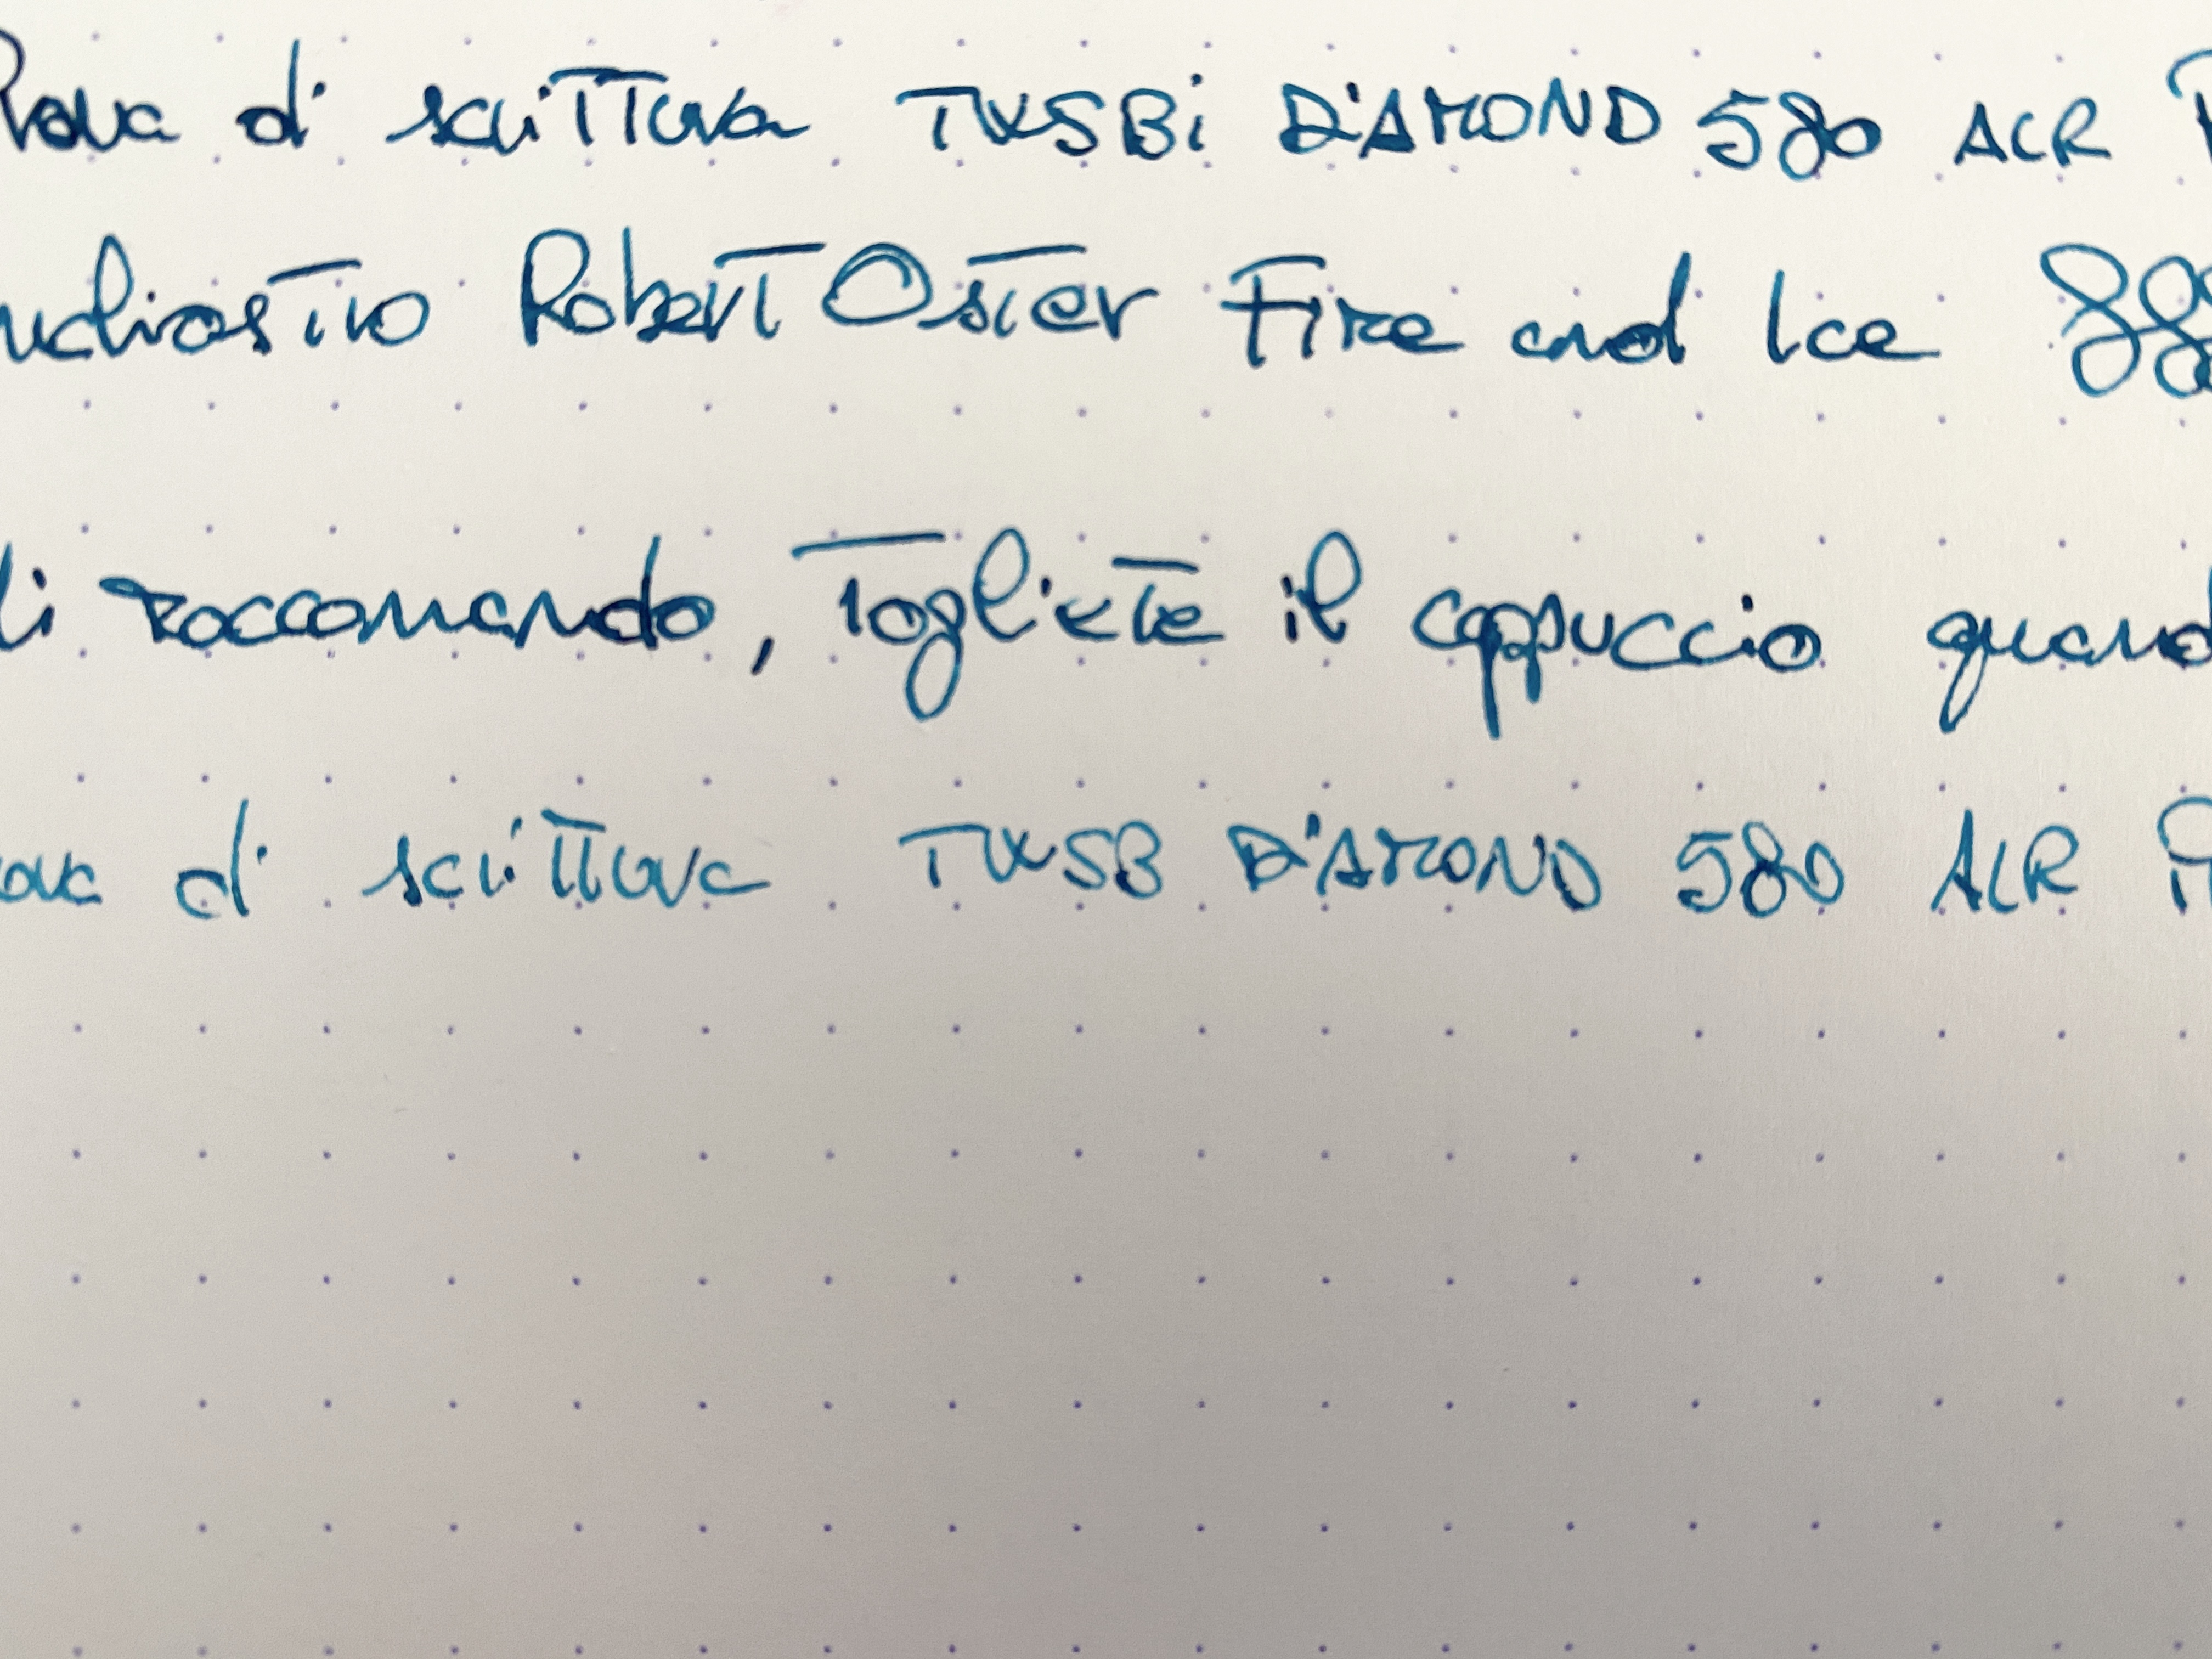 Prova di scrittura TWSBi DIAMOND 580 ALR
nchiostro Robert Oster Fire and Ice
raccomando, togliete il cappuccio quand
ova di scrittura TWSB DIAMOND 580 ALR